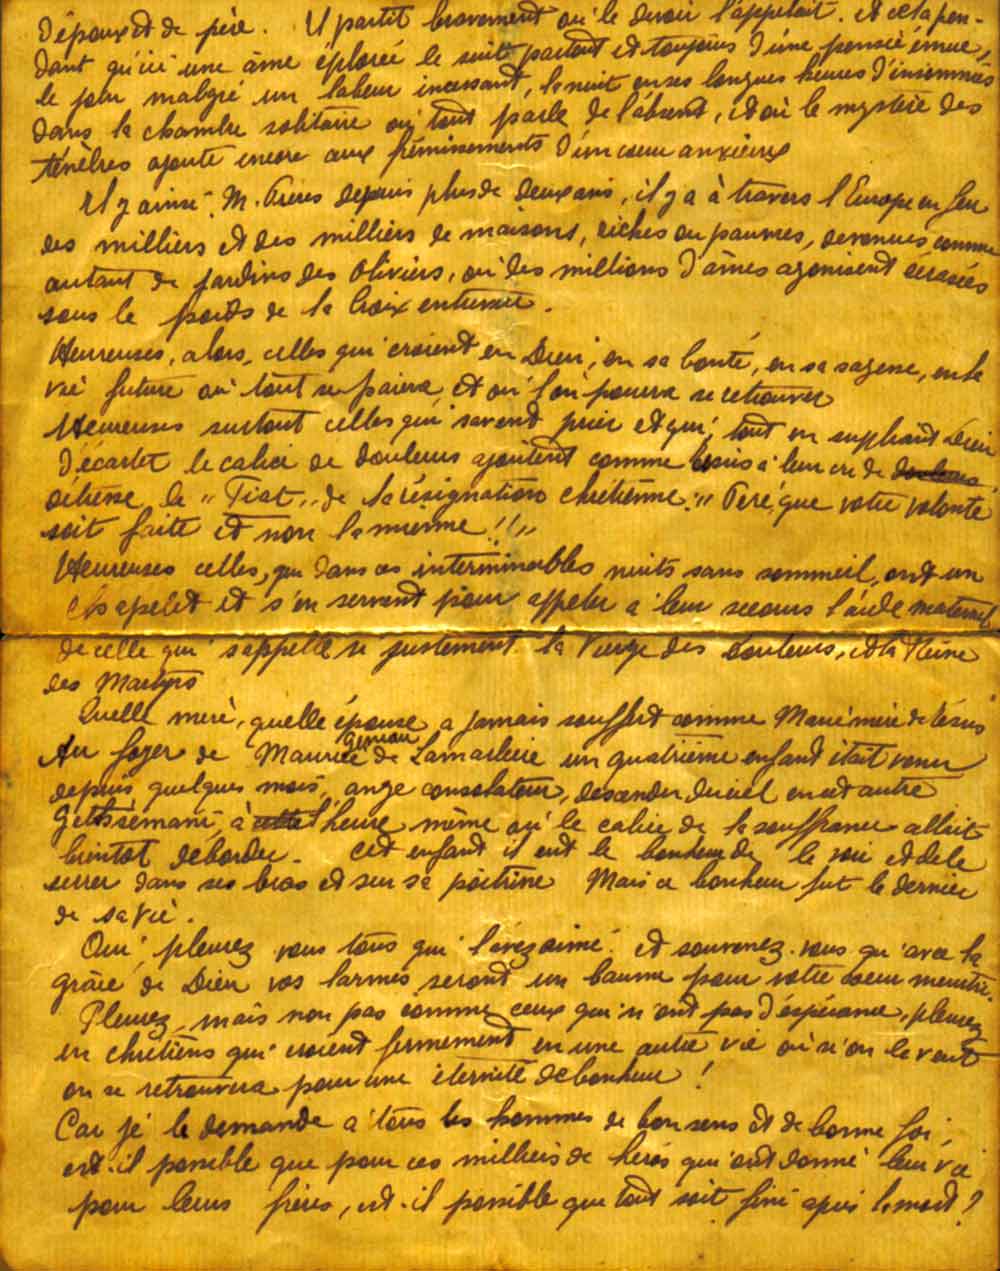 d'époux et de père. Il partit bravement où le devoir l'appelait. Et cela pen-
dant qu'ici une âme éplorée le suit partout et toujours d'une pensée émue,
le jour malgré un labeur incessant, la nuit en ses longues heures d'insomnies
dans la chambre solitaire où tout parle de l'absent, et où le mystère des
ténèbres ajoute encore aux frémissements d'un coeur anxieux
Il y a ainsi M. Frères depuis plus de deux ans, il y a à travers l'Europe en feu
des milliers et des milliers de maisons, riches ou pauvres, devenues comme
autant de jardins des Oliviers, où des millions d'âmes agonisent écrasées
sous le poids de la Croix entrevue.
Heureuses, alors, celles qui croient en Dieu, en sa bonté, en sa sagesse, en la
vie future où tout se paiera et où l'on pourra se retrouver
Heureuses surtout celles qui savent prier et qui, tout en suppliant Dieu
d'écarter le calice de douleurs ajoutent comme Jésus à leur cri de douleurs
détresse le " Fiat " de la résignation chrétienne " Père, que votre volonté
soit faite et non la mienne !! "
Heureuses celles, qui dans ces interminables nuits sans sommeil, ont un
chapelet et s'en servent pour appeler à leur secours l'aide maternel
de celle qui s'appelle si justement la Vierge des Douleurs, et la Reine
des Martyrs
Quelle mère, quelle épouse a jamais souffert comme Marie mère de Jésus
Au foyer de Maurice de Lamarlière un quatrième enfant était venu
depuis quelques mois, ange consolateur, descendu du ciel en cet autre
Gethsémani, à cette l'heure même où le calice de la souffrance allait
bientôt déborder. Cet enfant il eut le bonheur de le voir et de le
serrer dans ses bras et sur sa poitrine Mais ce bonheur fut le dernier
de sa vie.
Oui pleurez vous tous qui l'avez aimé. et souvenez-vous qu'avec la
grâce de Dieu vos larmes seront un baume pour votre coeur meurtri.
Pleurez, mais non pas comme ceux qui n'ont pas d'espérance, pleurez
en chrétiens qui croient fermement en une autre vie où si on le veut
on se retrouvera pour une éternité de bonheur !
Car je le demande à tous les hommes de bon sens et de bonne foi,
est-il possible que pour ces milliers de héros qui ont donné leur vie
pour leurs frères, est-il possible que tout soit fini après la mort ?